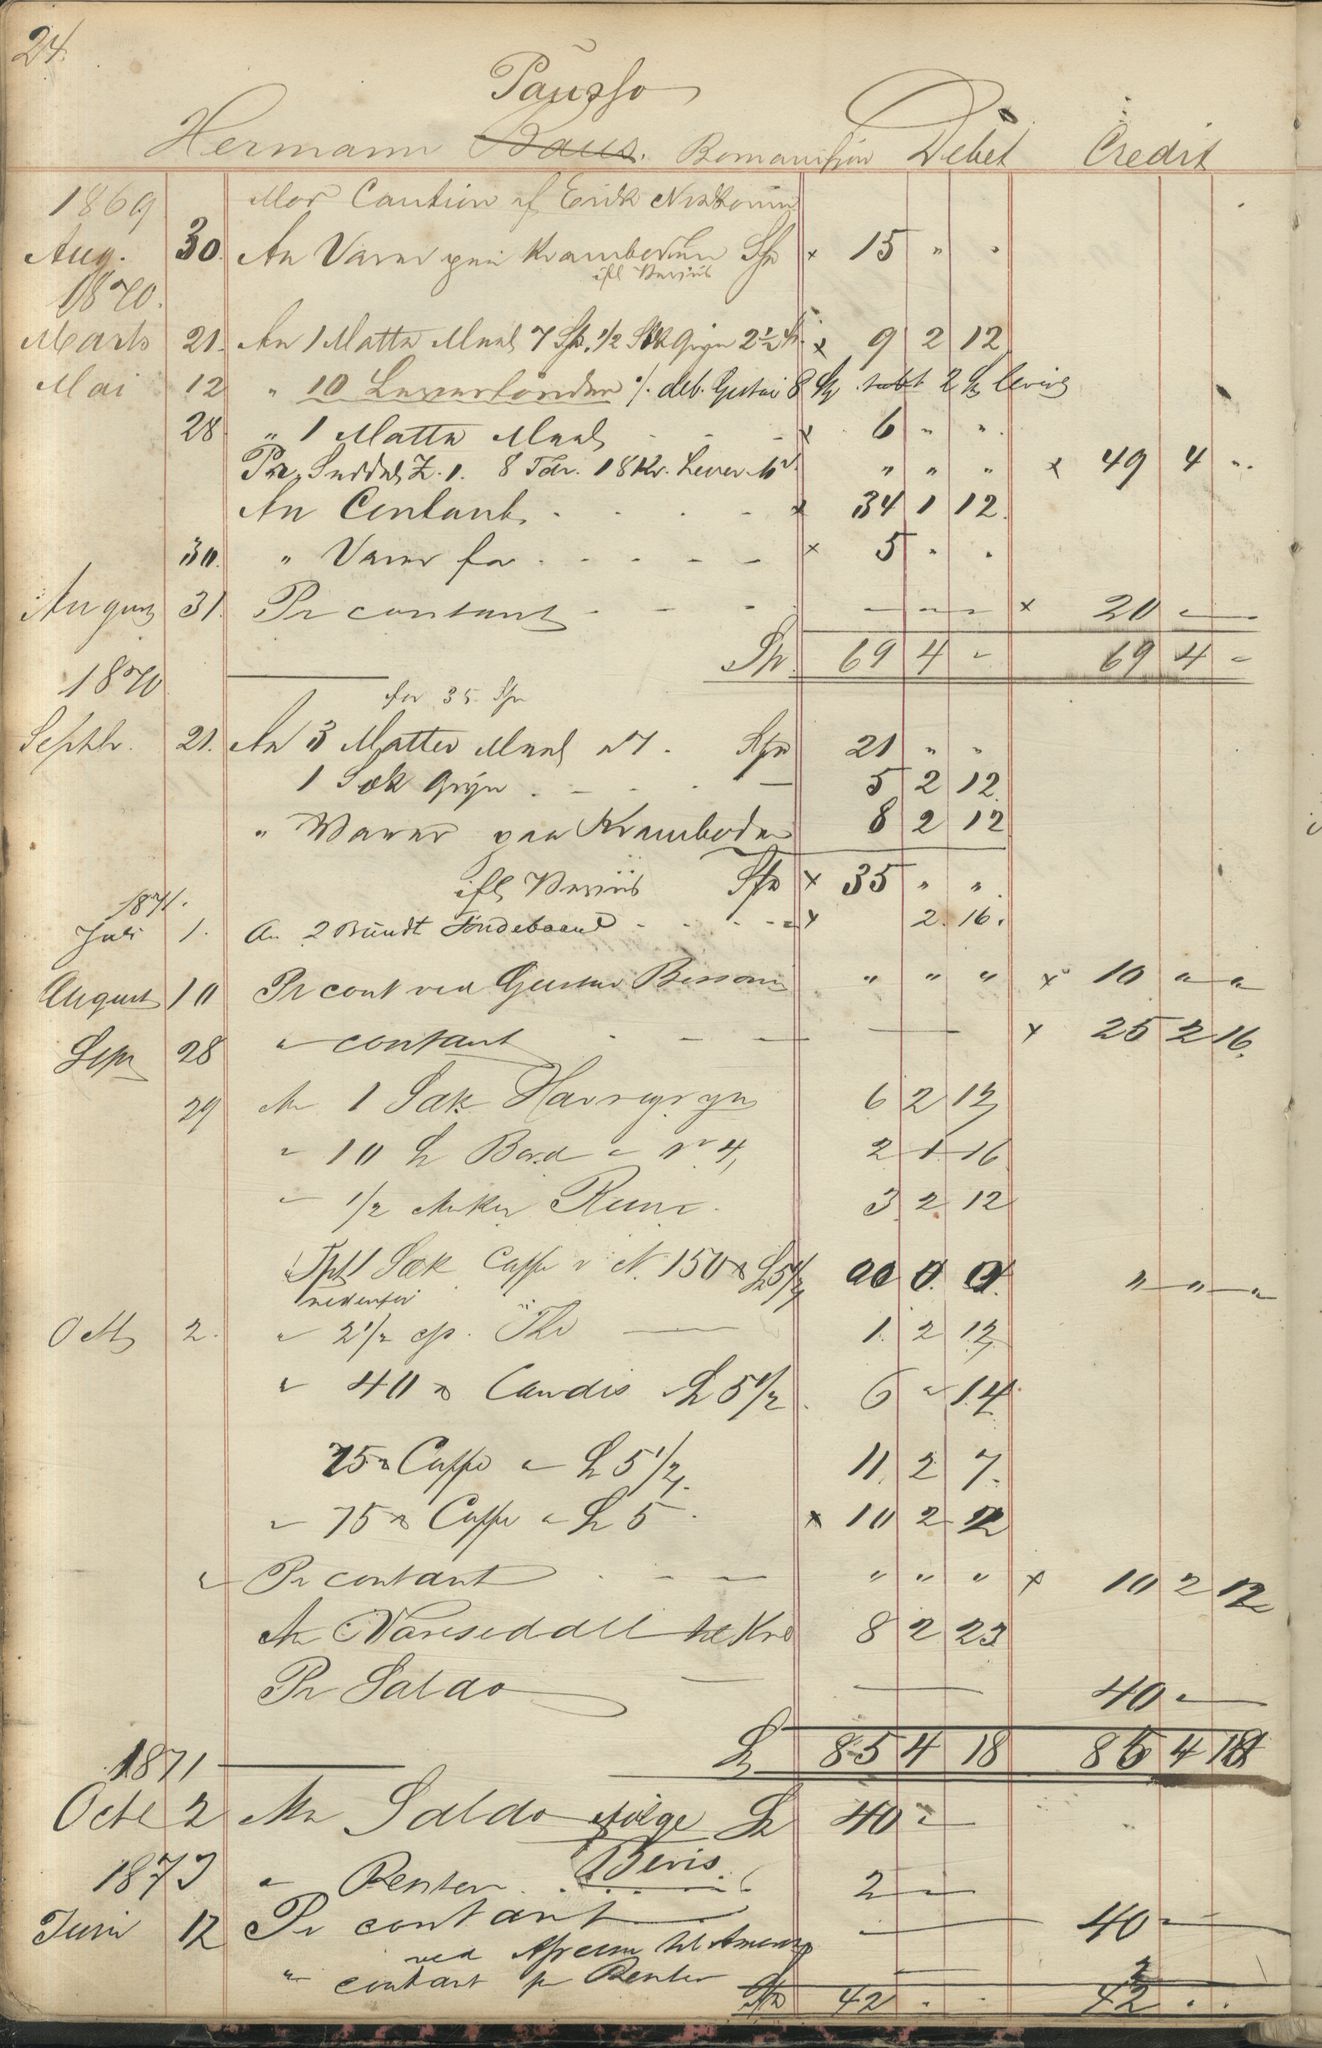 24.
Pausso
Hermann Baus. Debet Credit
1869 Mod Caution af Erik
Aug. 30. An Varer paa Kramboden Spd × 15 " "
ifl Beviis
1870.
Marts 21. An 1 Matte Meel 7 Spd. 1/2 Sæk Gryn 2 1/2 × 9 2 12
Mai 12 " 10 Levertönder deb. Gustav 8
28. " 1 Matte Meel - - × 6 " "
Pr. Seddel Z. 1. 8 Tdr. 18 Kr. Lever " " " × 49 4 "
An Contant - - × 34 1 12
30. " Varer for - - - - × 5 " "
August 31. Pr contant - - - — — — × 20 —
Sp. 69 4 - 69 4 -
1870
for 35 Sp
Septbr. 21. An 3 Matter Meel a 7. Spd 21 " "
1 Sæk Gryn - - - 5 2 12
" Varer paa Kramboden 8 2 12
ifl Beviis Spd × 35 " "
1871.
Juli 1. An 2 Bundt Töndebaand - - - × 2. 16.
August 10 Pr cont ved Gustav " " " × 10 " "
Sepr 28 " contant - - - — × 25 2 16.
29 An 1 Sæk Havregryn 6 2 12
" 10 Bord 4, 2 1 16
" 1/2 Anker Rum. 3. 2 12
1 Sæk Caffe N. 150 5 1/2 00 0 0 " " "
nedenfor
Octb 2. " 2 1/2 The — 1. 2 12,
" 40 Candis 5 1/2 6 " 14
75 Caffe " 5 1/2 11. 2 7.
" 75 Caffe " 5 × 10 2 2
" Pr contant - - - " " " × 10 2 12
An Vareseddel 8 2 23
Pr Saldo — — 40 —
85 4 18 85 4 18
1871
Octb 2 An Saldo ifölge 40 "
Bevis
1873 " Renter. . . . . 2 —
Juni 12 Pr contant — 40 —
ved
" contant pr Renter — 2
Spd 42 . . 42 . .